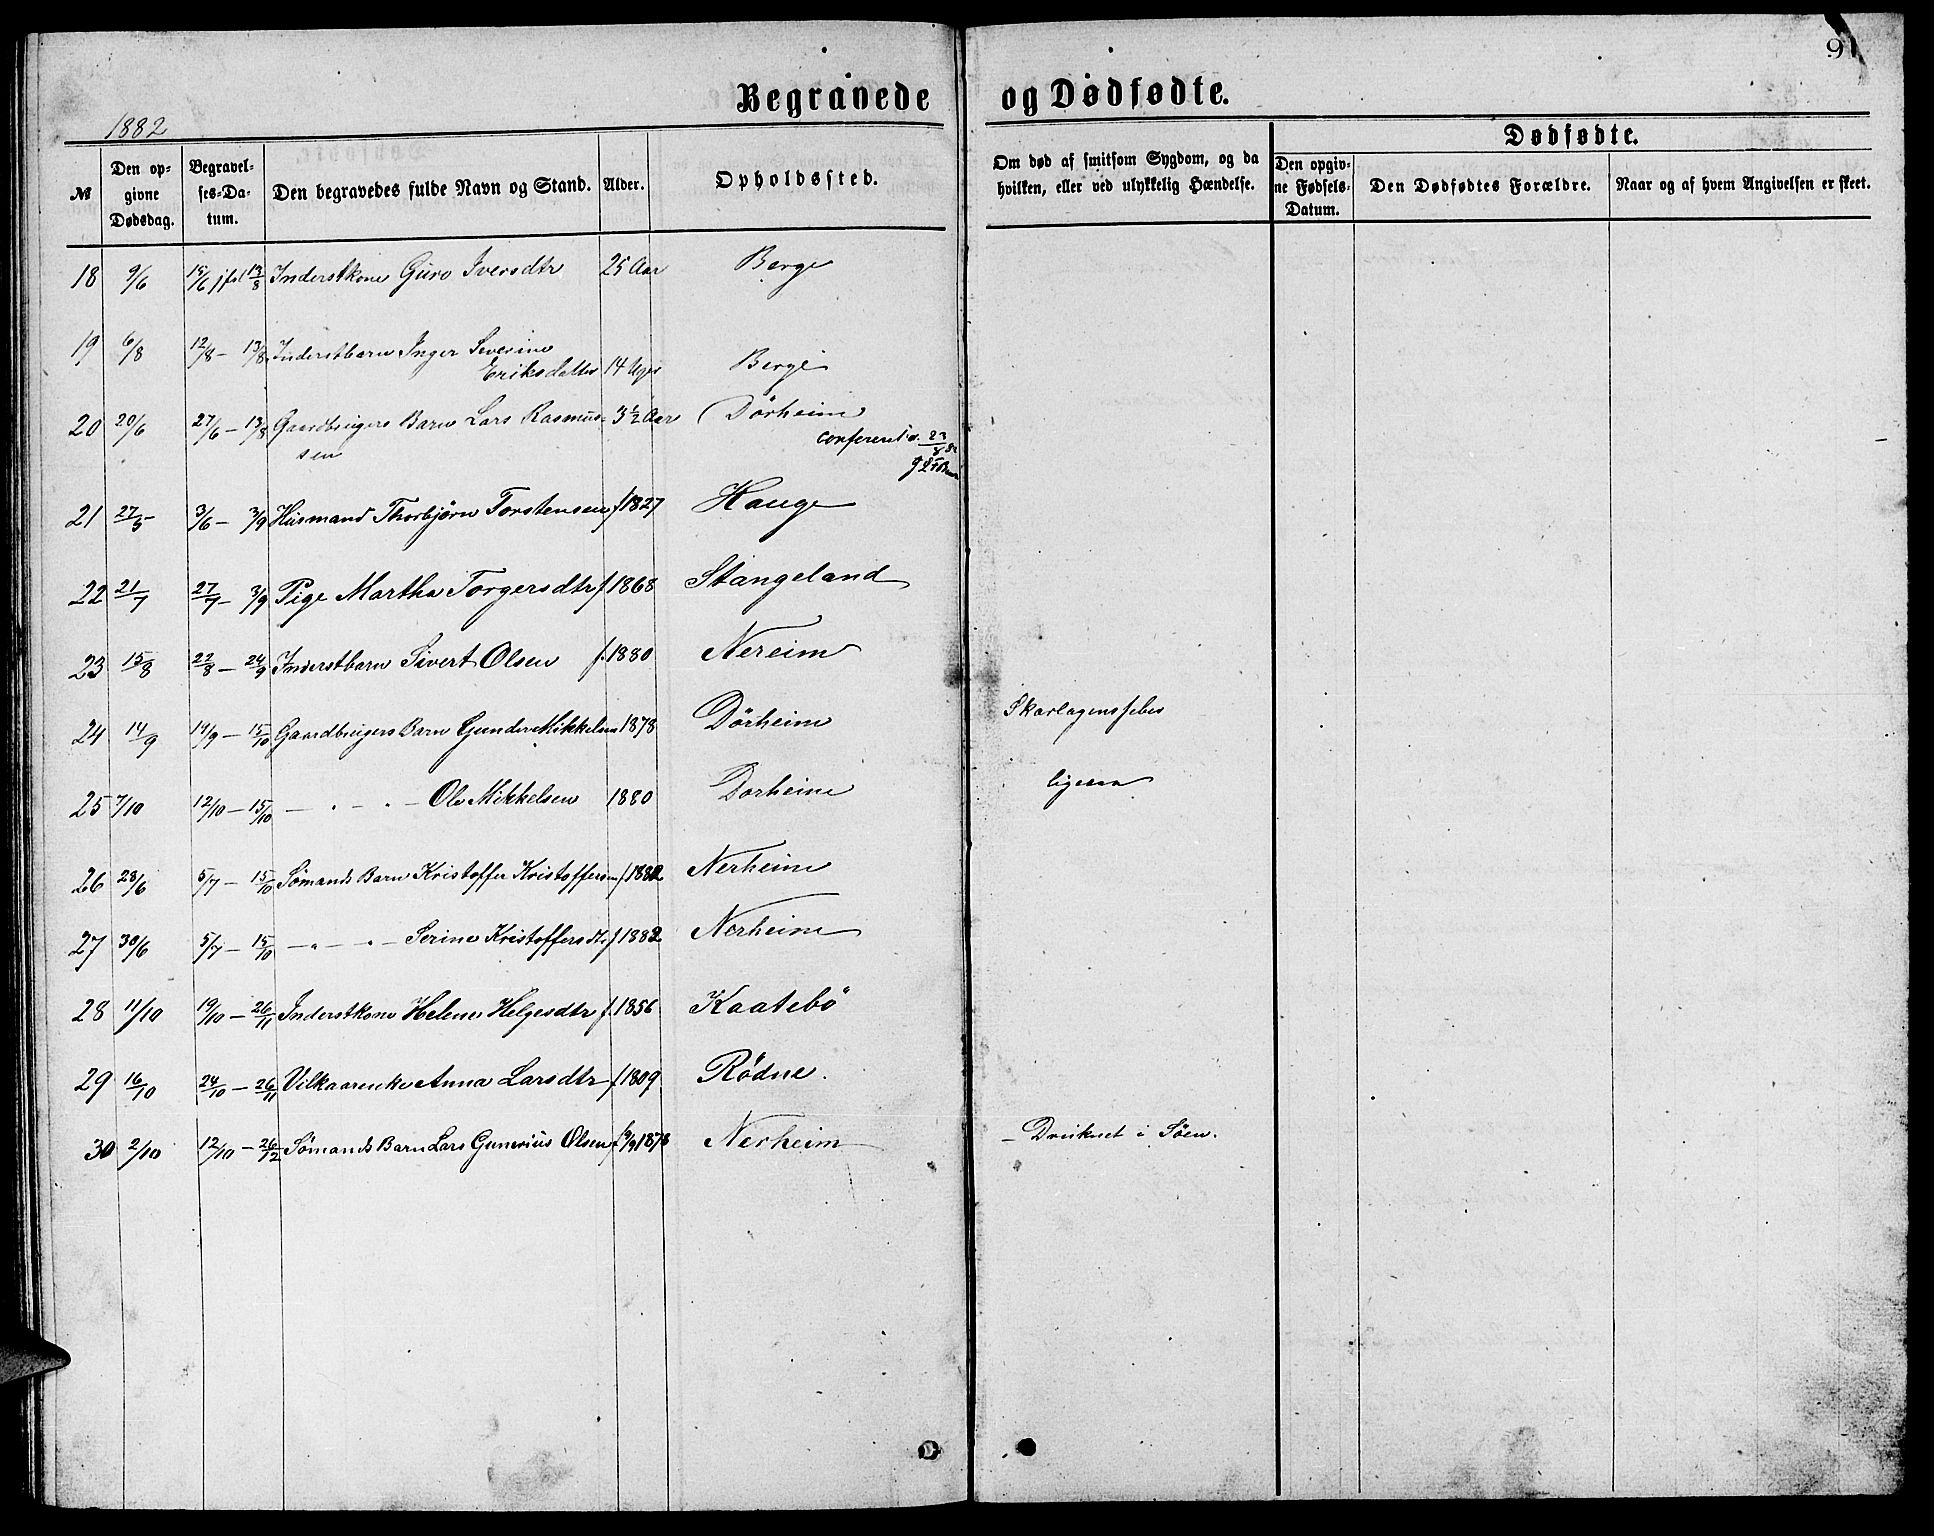 91
Begravede og Dødfødte.
1882
Dødfødte.
№ Den opgivne Dødsdag. Begravelses-Datum. Den begravedes fulde Navn og Stand. Alder. Opholdssted. Om død af smitsom Sygdom, og da hvilken, eller ved ulykkelig Hændelse. Den opgivne Fødsels-Datum. Den Dødfødtes Forældre. Naar og af hvem Angivelsen er skeet.
18 9/6 15/6 jfst 13/8 Inderstkone Guro Iversdtr 25 Aar Berge
19 6/8 12/8 – 13/8 Inderstbarn Inger Severine
Eriksdatter 14 Uger Berge
20 20/6 27/6 – 13/8 Gaardbrugers Barn Lars Rasmus- 3 1/2 Aar Dörheim
sen
conferent 23/8 82
21 27/5 3/6 – 3/9 Husmand Thorbjørn Torstensen f 1827 Hauge
22 21/7 27/7 – 3/9 Pige Martha Torgersdtr f 1868 Stangeland
23 15/8 22/8 – 24/9 Inderstbarn Sivert Olsen f. 1880 Nereim
24 14/9 14/9 – 15/10 Gaardbrugers Barn Gunder Mikkelsen 1878 Dörheim Skarlagensfeber
25 7/10 12/10 – 15/10 – " – " – Ole Mikkelsen 1880 Dorheim ligesaa
26 28/6 5/7 – 15/10 Sømands Barn Kristoffer Kristoffersen f 1882 Nerheim
27 30/6 5/7 – 15/10 – " – " – Serine Kristoffersdtr f 1882 Nerheim
28 11/10 19/10 – 26/11 Inderstkone Helene Helgesdtr f. 1856 Kaatebö
29 16/10 24/10 – 26/11 Vilkaarenke Anna Larsdtr f 1809 Rödne.
30 2/10 12/10 – 26/12 Sømands Barn Lars Gunerius Olsen f. 9/9 1878 Nerheim – Druknet i Söen.